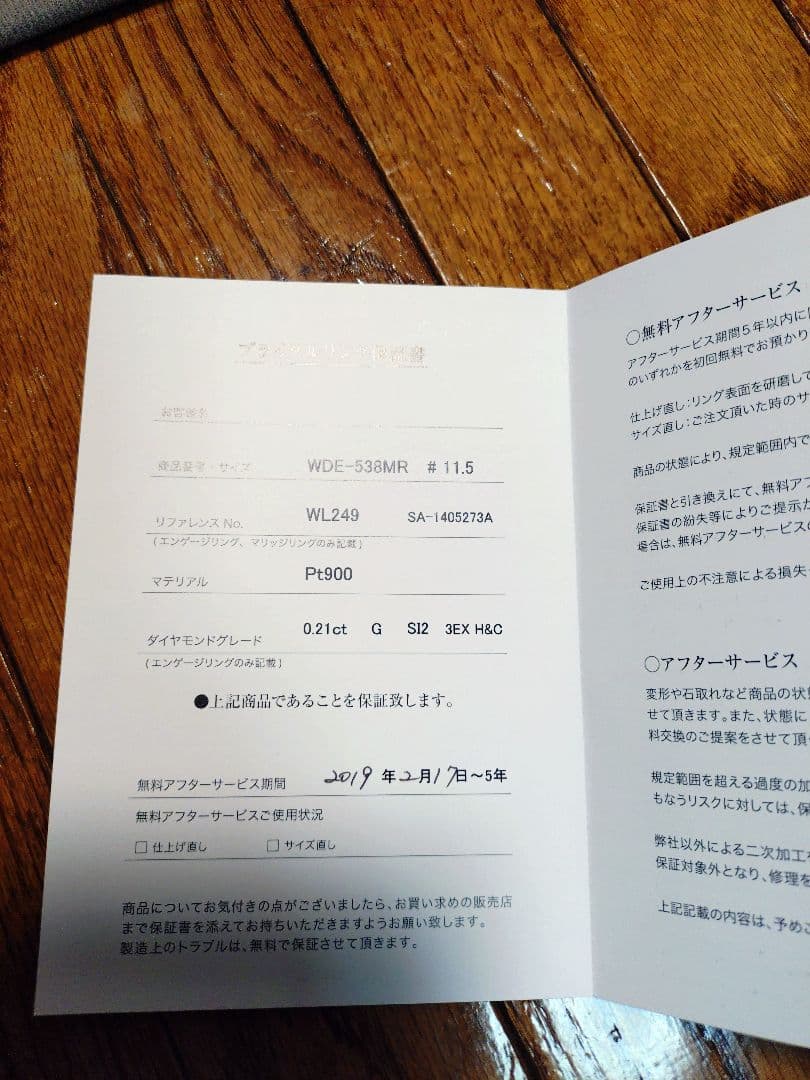 ブライダルリング保証書
お客様名
商品番号・サイズ WDE-538MR # 11.5
リファレンス No. WL249 SA-1405273A
(エンゲージリング、マリッジリングのみ記載)
マテリアル Pt900
ダイヤモンドグレード 0.21ct G SI2 3EX H&C
(エンゲージリングのみ記載)
●上記商品であることを保証致します。
無料アフターサービス期間 2019 年 2月 17日〜5年
無料アフターサービスご使用状況
□ 仕上げ直し □ サイズ直し
商品についてお気付きの点がございましたら、お買い求めの販売店
まで保証書を添えてお持ちいただきますようお願い致します。
製造上のトラブルは、無料で保証させて頂きます。
○無料アフターサービス
アフターサービス期間5年以内に
のいずれかを初回無料でお預かり
仕上げ直し：リング表面を研磨して
サイズ直し：ご注文頂いた時のサ
商品の状態により、規定範囲内で
保証書と引き換えにて、無料アフ
保証書の紛失等によりご提示が
場合は、無料アフターサービスの
ご使用上の不注意による損失・
○アフターサービス
変形や石取れなど商品の状
せて頂きます。また、状態に
料交換のご提案をさせて頂
規定範囲を超える過度の加
もなうリスクに対しては、保
弊社以外による二次加工を
保証対象外となり、修理を
上記記載の内容は、予めご